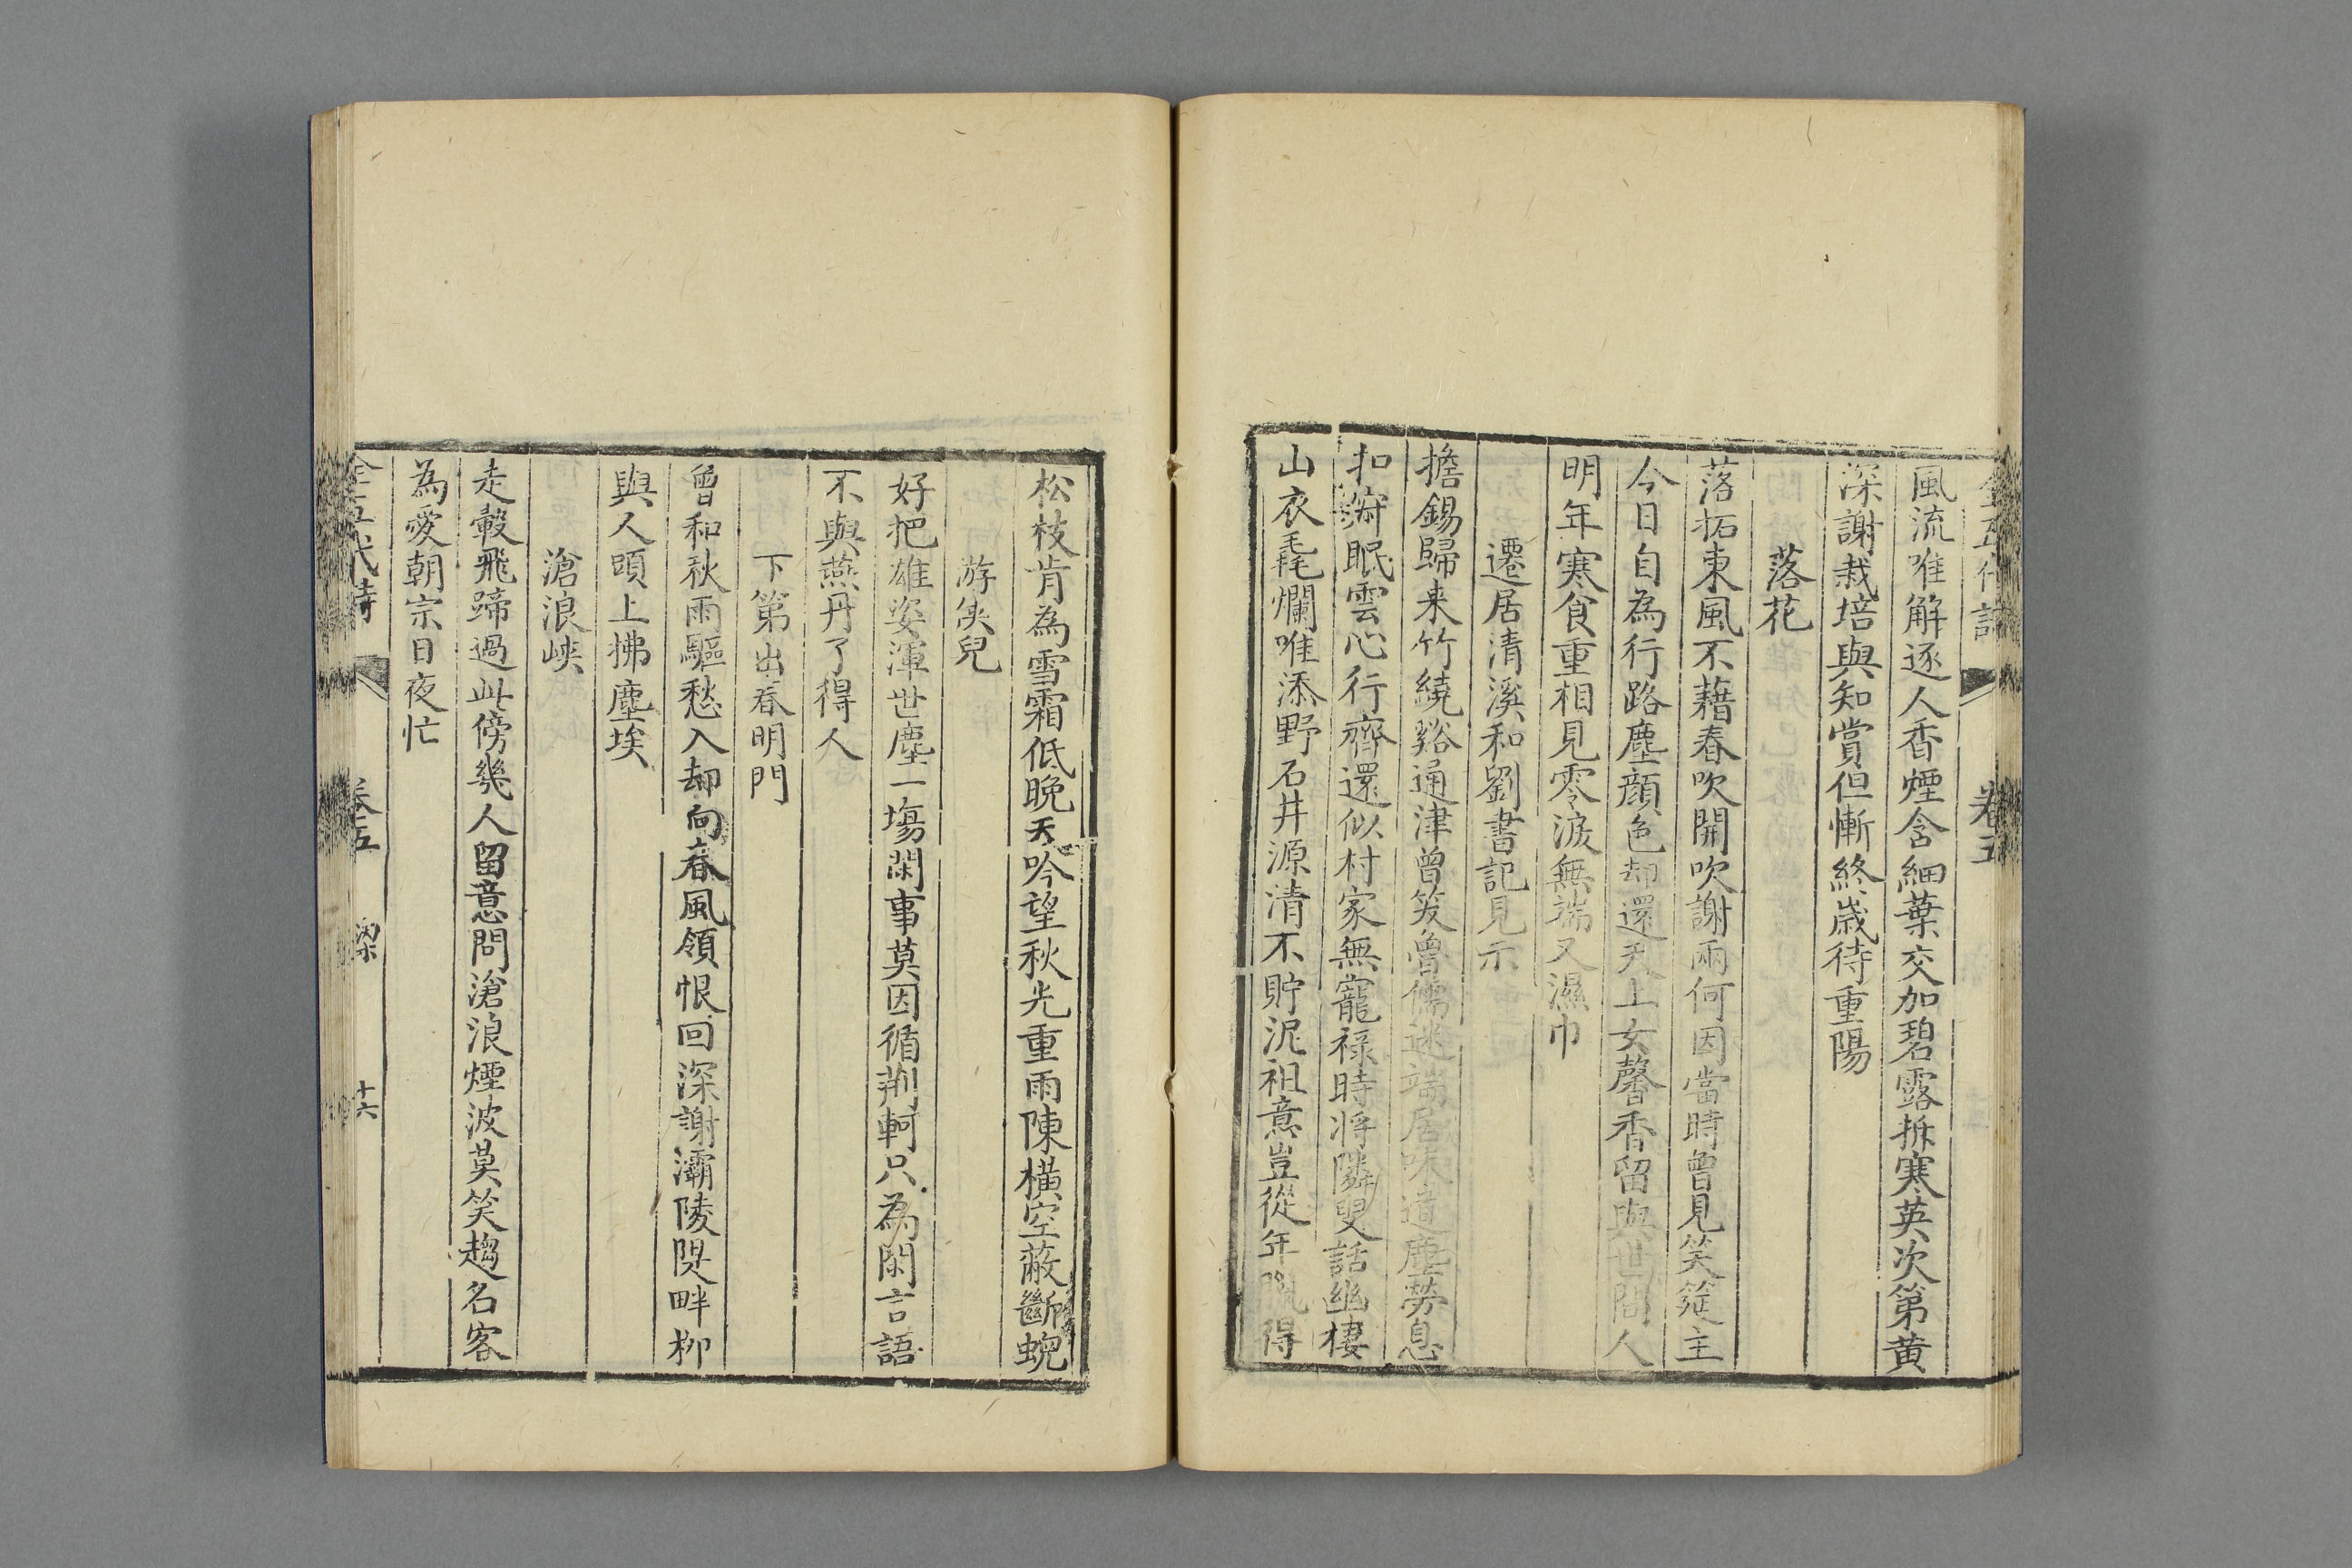 全五代詩 卷五
風流唯解逐人香煙含細葉交加碧露拆寒英次第黄
深謝栽培與知賞但慚終歲待重陽
落花
落拓東風不藉春吹開吹謝兩何因當時曾見笑筵主
今日自為行路塵顔色却還天上女馨香留與世間人
明年寒食重相見零淚無端又濕巾
遷居清溪和劉書記見示
擔錫歸来竹繞谿過津曾笑魯儒迷端居味道塵勞息
扣寂眠雲心行齊還似村家無寵禄時将隣叟話幽棲
山衣毳爛唯添野石井源清不貯泥祖意豈從年臘得
松枝肯為雪霜低晚天吟望秋光重雨陳橫空蔽斷蜺
游俠兒
好把雄姿渾世塵一塲閑事莫因循荆軻只為閑言語
不與燕丹了得人
下第出春明門
曾和秋雨驅愁入却向春風領恨回深謝灞陵隄畔柳
與人頭上拂塵埃
滄浪峽
走轂飛蹄過此傍幾人留意問滄浪煙波莫笑趨名客
為愛朝宗日夜忙
全五代詩 卷五 梁 十六